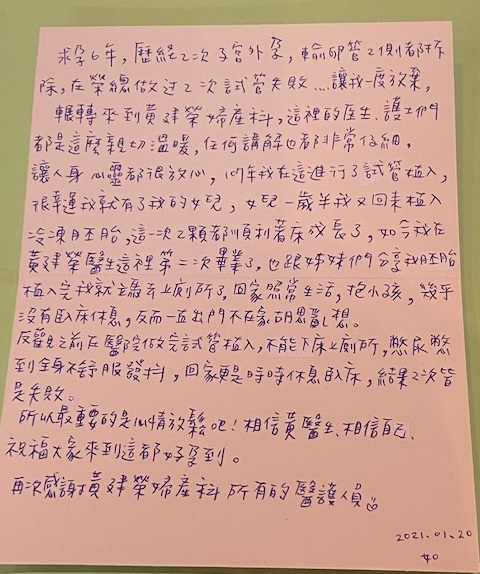 求孕6年，歷經2次子宮外孕，輸卵管2側都拆
除，在榮總做过2次試管失敗…讓我一度放棄。
輾轉來到黃建榮婦產科，這裡的医生、護士們
都是這麼親切溫暖，任何講解也都非常仔細，
讓人身心靈都很放心，109年我在這進行了試管植入，
很幸運我就有了我的女兒，女兒一歲半我又回來植入
冷凍胚胎，這一次2顆都順利著床成長了，如今我在
黃建榮醫生這裡第二次畢業了，也跟姊妹們分享我胚胎
植入完我就馬去上廁所了，回家照常生活，抱小孩，幾乎
沒有臥床休息，反而一直出門不在家胡思亂想。
反觀之前在醫院做完試管植入，不能下床上廁所，憋尿憋
到全身不舒服發抖，回家更是時時休息臥床，結果2次皆
是失敗。
所以最重要的是心情放鬆吧！相信黃醫生、相信自己、
祝福大家來到這都好孕到。
再次感謝黃建榮婦產科所有的醫護人員
2021.01.20